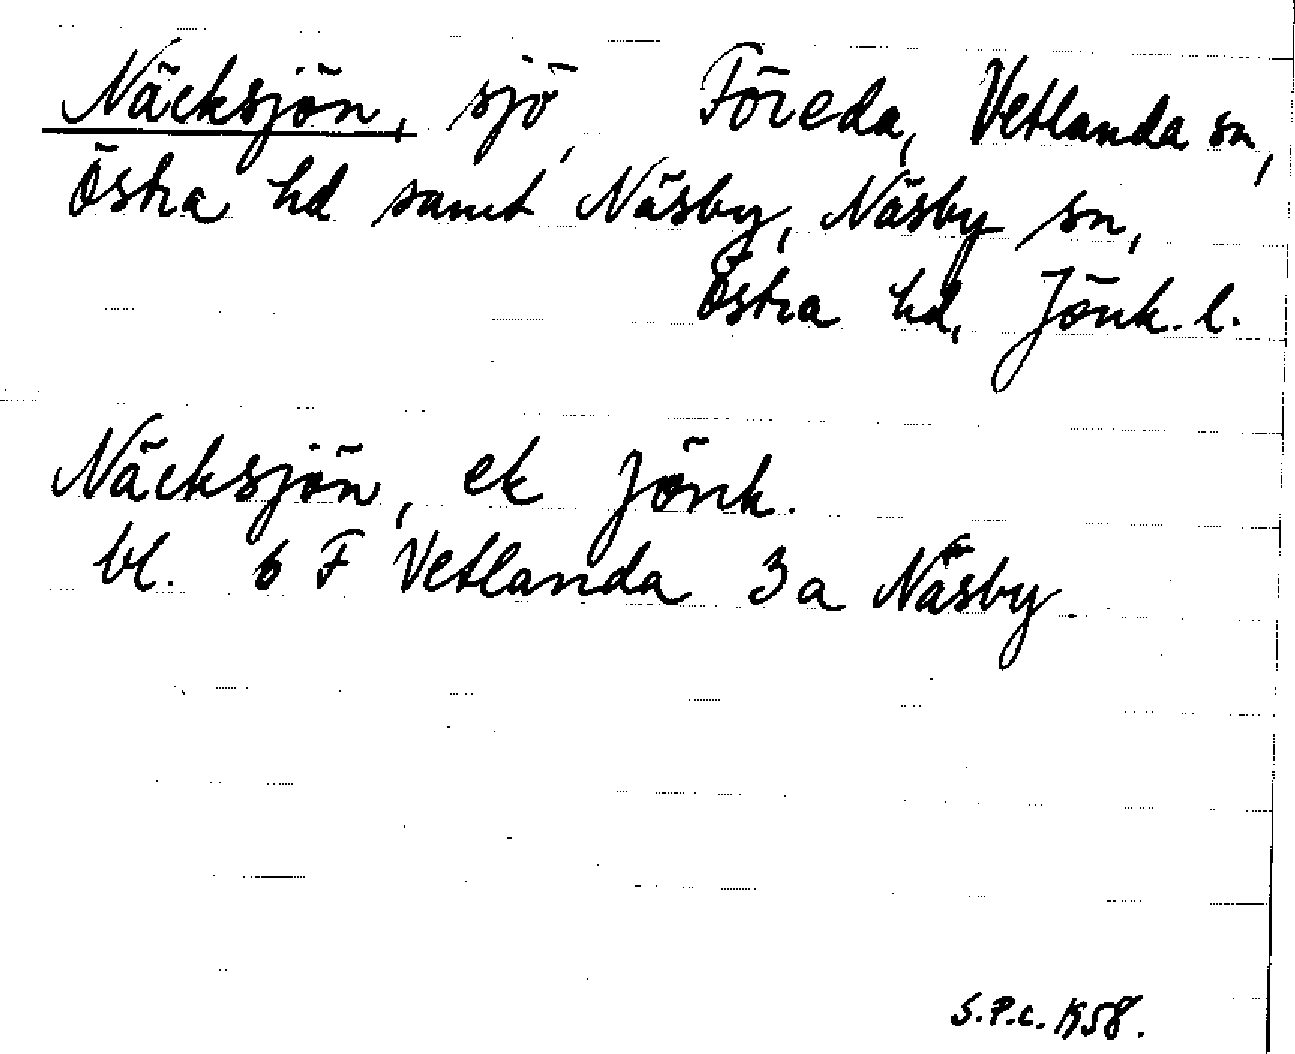 Näcksjön, sjö, Föreda, Vetlanda sn,
Östra hd samt Näsby, Näsby sn,
Östra hd, Jönk. l.
Näcksjön, ek Jönk.
bl. 6 F Vetlanda 3 a Näsby
S.P.C. 1958.